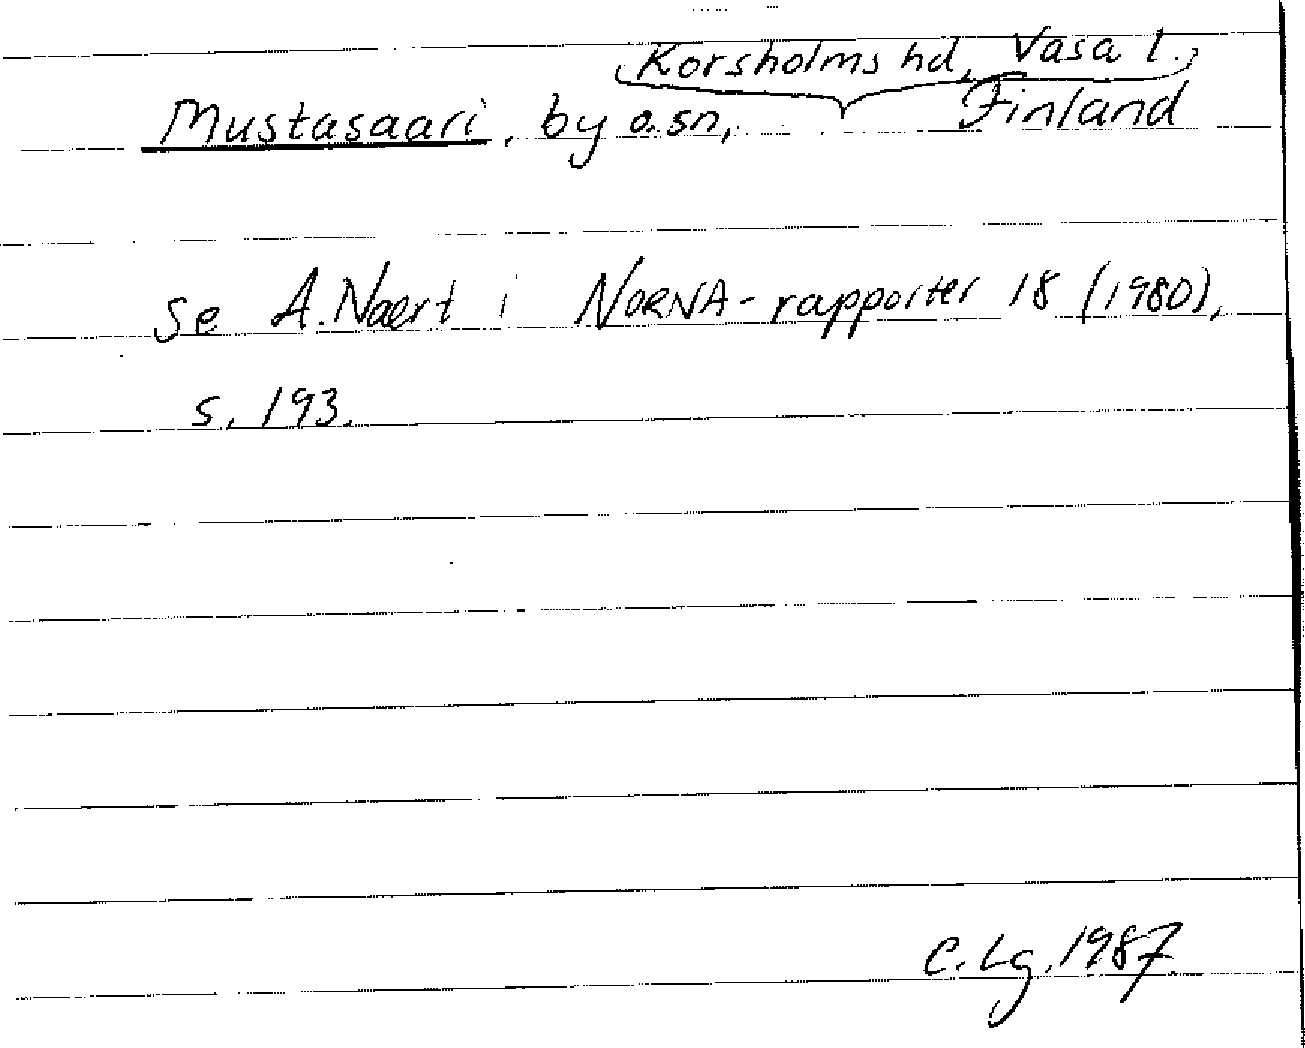 Korsholms hd, Vasa l.,
Mustasaari, by o. sn, Finland
se A. Naert i NORNA-rapporter 18 (1980),
s. 193.
C. Lg. 1987